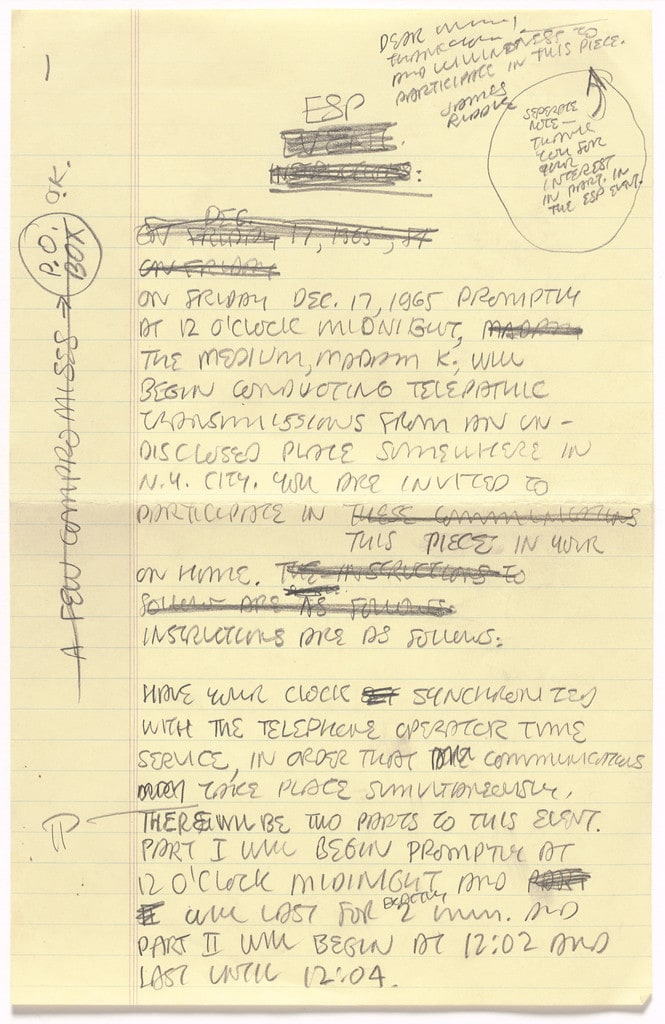 DEAR
THANK YOU
AND WILLINGNESS TO
PARTICIPATE IN THIS PIECE.
JAMES
RIDDLE
SEPERATE
NOTE—
THANK
YOU FOR
YOUR
INTEREST
IN PART. IN
THE ESP EVENT.
ESP
EVENT
INSTRUCTIONS:
DEC.
ON FRIDAY 17, 1965, AT
ON FRIDAY
ON FRIDAY DEC. 17, 1965 PROMPTLY
AT 12 O'CLOCK MIDNIGHT, MADAM
THE MEDIUM, MADAM K; WILL
BEGIN CONDUCTING TELEPATHIC
TRANSMISSIONS FROM AN UN-
DISCLOSED PLACE SOMEWHERE IN
N.Y. CITY. YOU ARE INVITED TO
PARTICIPATE IN THESE COMMUNICATIONS
THIS PIECE IN YOUR
ON HOME. THE INSTRUCTIONS TO
FOLLOW ARE AS FOLLOWS
INSTRUCTIONS ARE AS FOLLOWS:
HAVE YOUR CLOCK SYNCHRONIZED
WITH THE TELEPHONE OPERATOR TIME
SERVICE, IN ORDER THAT THE COMMUNICATIONS
MAY TAKE PLACE SIMULTANEOUSLY.
THERE WILL BE TWO PARTS TO THIS EVENT.
PART I WILL BEGIN PROMPTLY AT
12 O'CLOCK MIDNIGHT AND PART
I WILL LAST FOR EXACTLY 2 MIN. AND
PART II WILL BEGIN AT 12:02 AND
LAST UNTIL 12:04.
A FEW COMPROMISES → P.O. BOX OK.